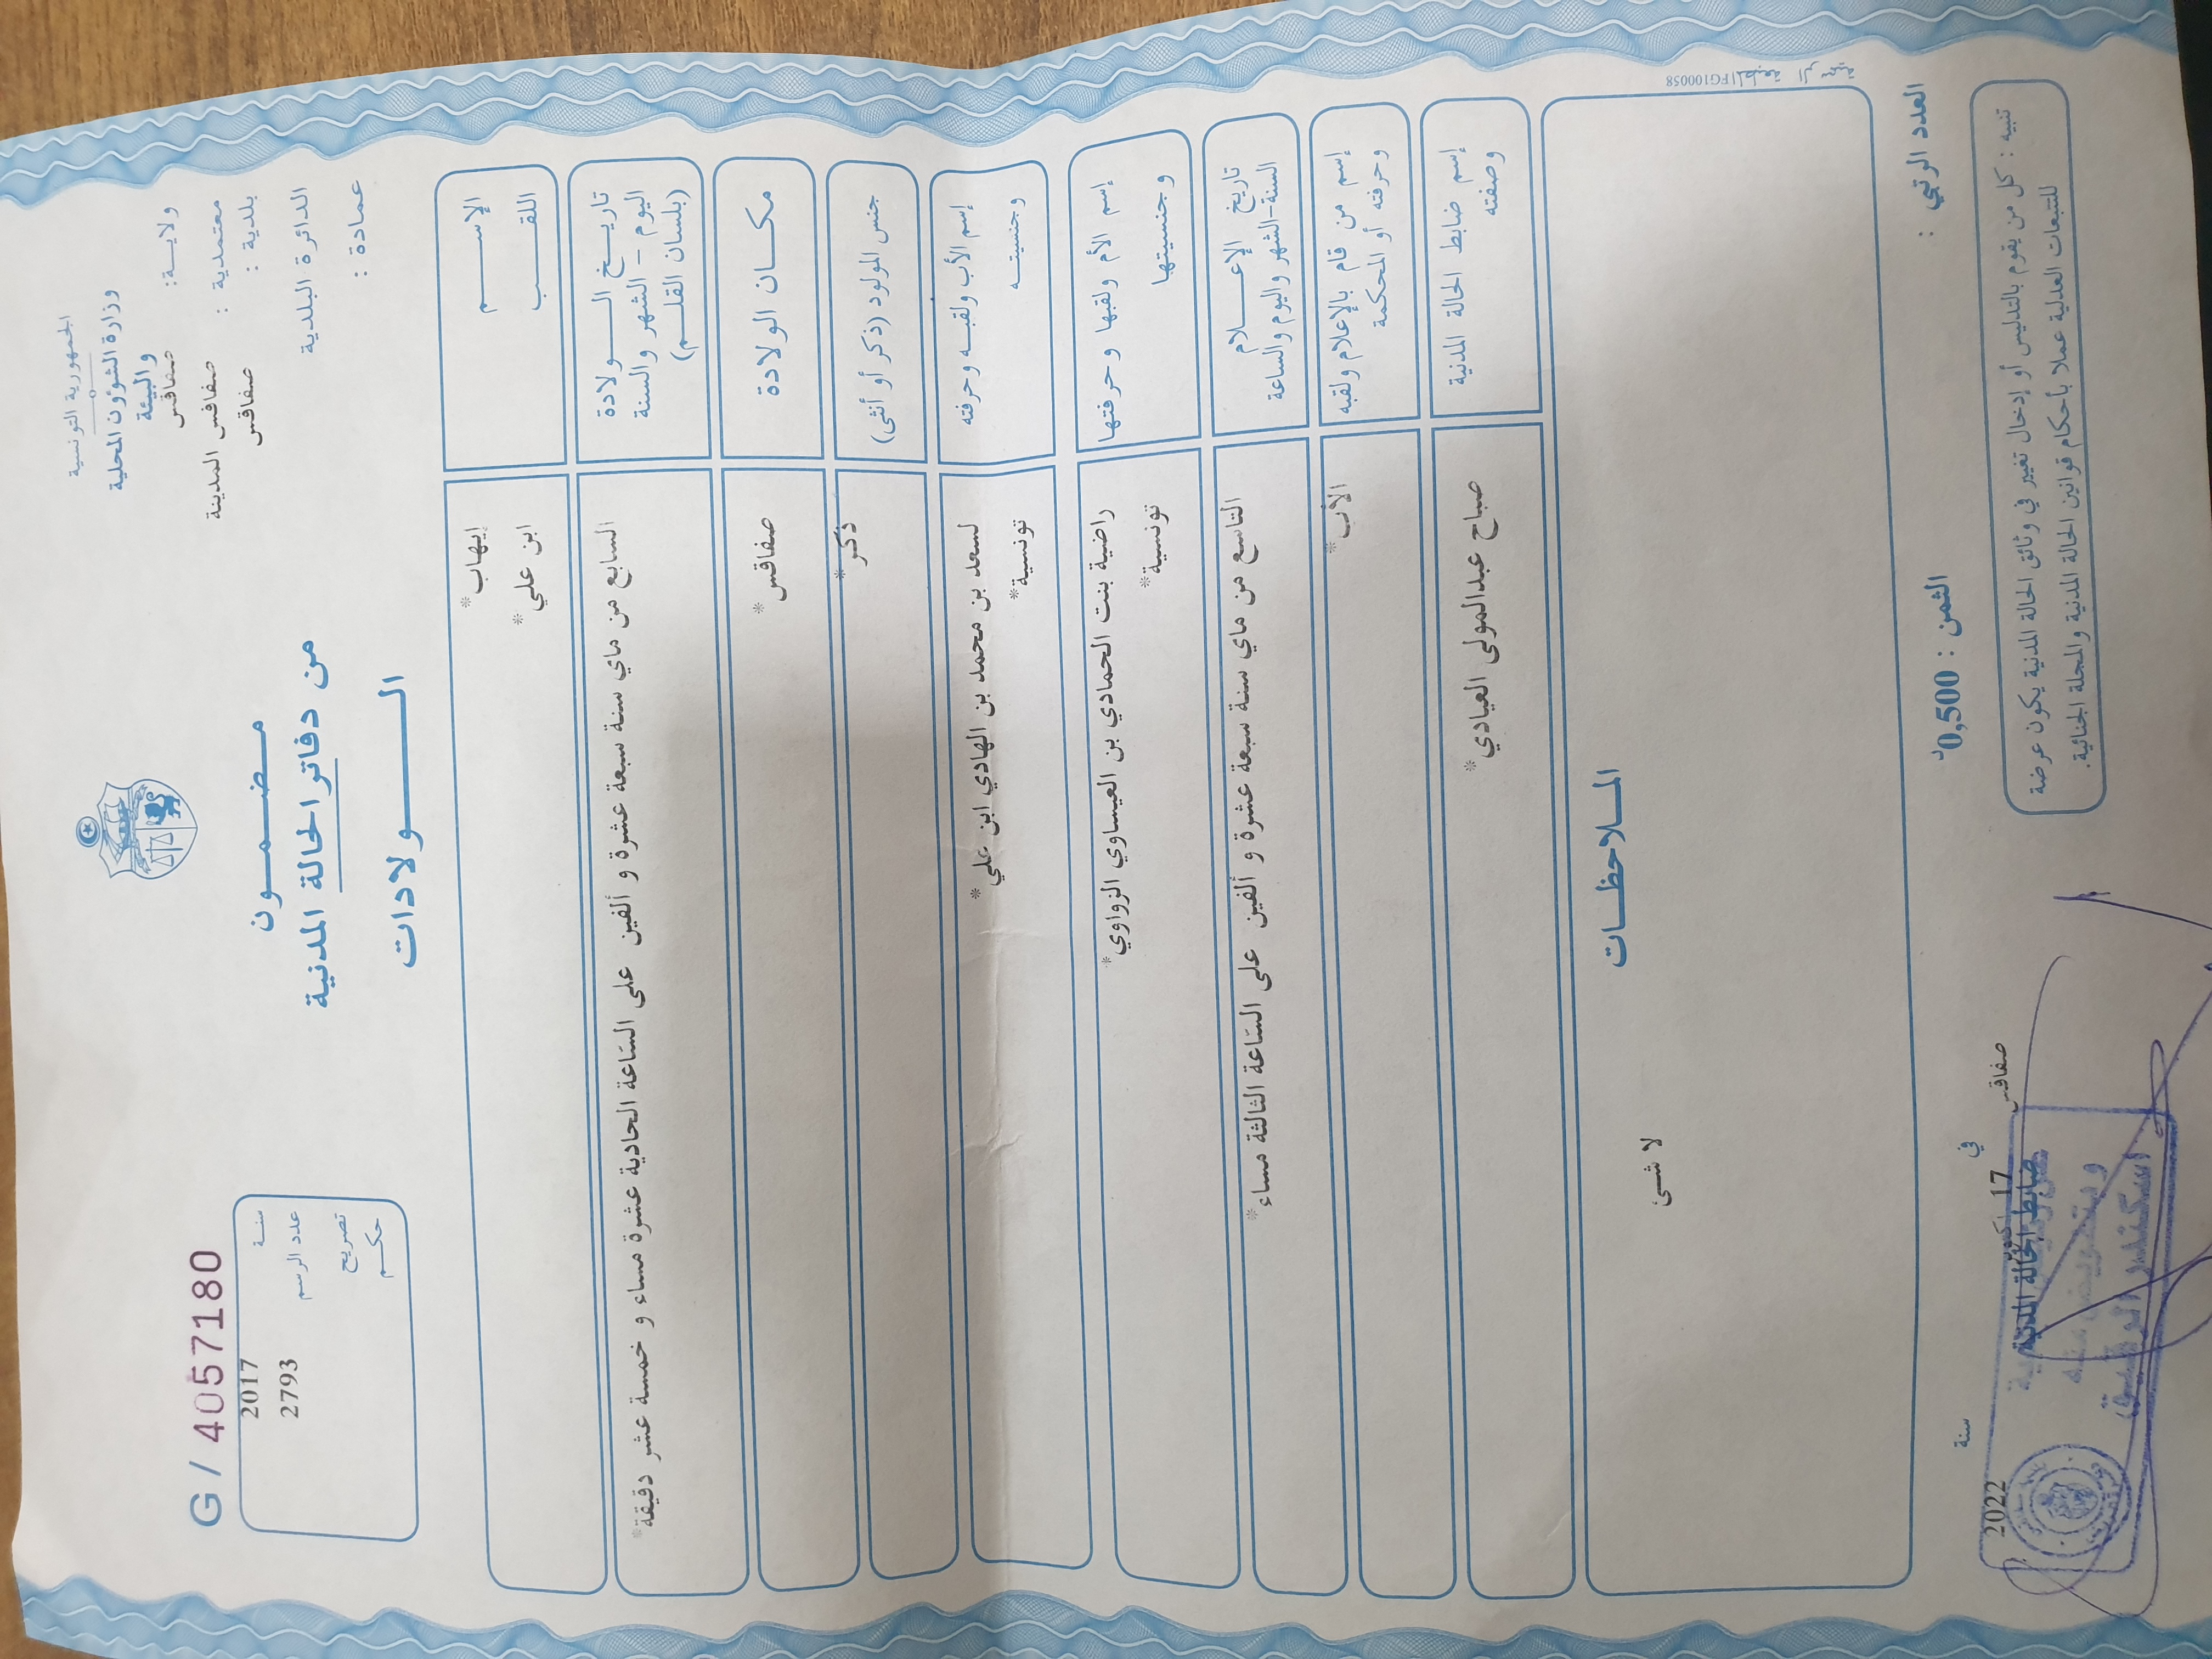 الجمهورية التونسية
وزارة الشؤون المحلية
والبيئة
ولايـــة : صفاقس
معتمدية : صفاقس المدينة
بلدية : صفاقس
الدائرة البلدية
عمادة :
مـضـمـــون
من دفاتر الحالة المدنية
الـــــولادات
G / 4057180
سنــة 2017
عدد الرسم 2793
تصريح
حكـــم
الإســــــم إيهاب*
اللقـــــب ابن علي*
تاريـــخ الــــولادة السابع من ماي سنة سبعة عشرة و ألفين على الساعة الحادية عشرة مساء و خمسة عشر دقيقة*
اليوم – الشهر والسنة
(بلسان القلــم)
مكـــان الولادة صفاقس*
جنس المولود (ذكر أو أنثى) ذكر*
إسم الأب ولقبـــه وحرفته لسعد بن محمد بن الهادي ابن علي*
وجنسيتـــه تونسية*
إسم الأم ولقبها وحرفتها راضية بنت الحمادي بن العيساوي الزواوي*
وجنسيتها تونسية*
تاريخ الإعــــلام التاسع من ماي سنة سبعة عشرة و ألفين على الساعة الثالثة مساء*
السنة-الشهر واليوم والساعة
إسم من قام بالإعلام ولقبه الأب*
وحرفته أو المحكمة
إسم ضابط الحالة المدنية صباح عبدالمولى العيادي*
وصفته
المـــلاحظـــات
لا شئ
المطبعة الرسمية FG100058
العدد الرتبي :
الثمن : 0,500د
تنبيه : كل من يقوم بالتدليس أو إدخال تغيير في وثائق الحالة المدنية يكون عرضة
للتتبعات العدلية عملا بأحكام قوانين الحالة المدنية والمجلة الجنائية.
صفاقس في 17 اكتوبر سنة 2022
ضابط الحالة المدنية
وبتفويض منه